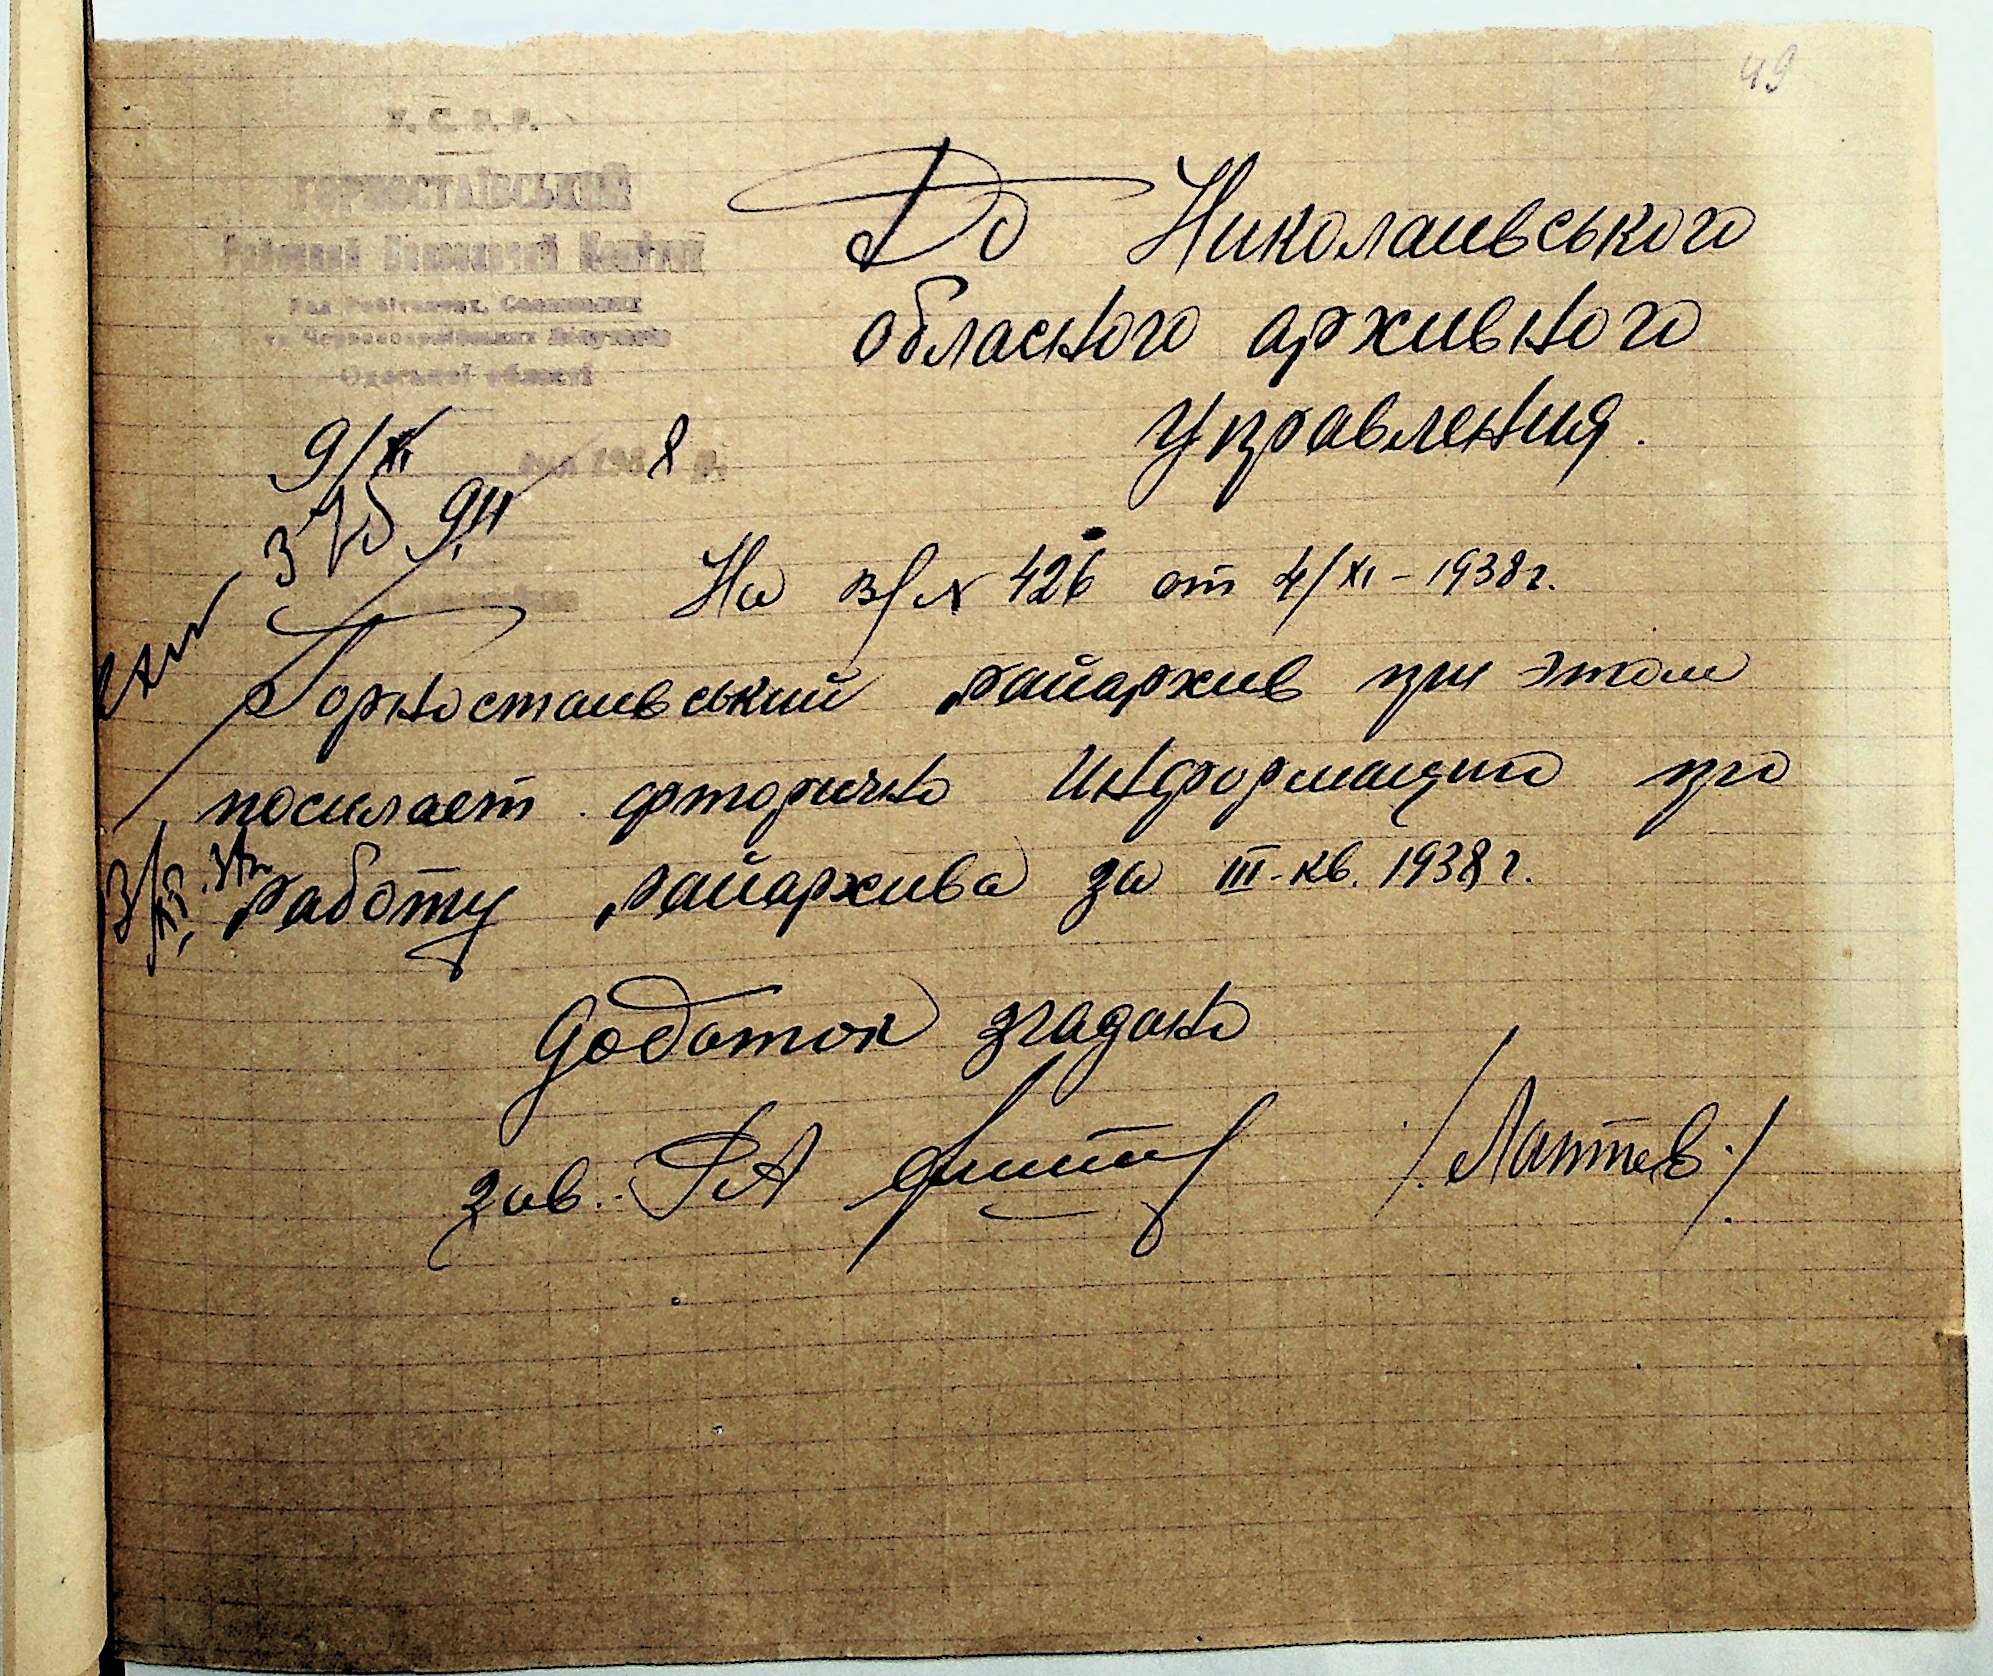 49
У. С. Р. Р.
ГОРНОСТАЇВСЬКИЙ
Районний Виконавчий Комітет
Рад Робітничих, Селянських
та Червоноармійських Депутатів
Одеської області
До Николаивського
обласного архивного
Управления.
9/XI 193 8 р.
На в/№ 426 от 4/XI - 1938 г.
Горностаивський райархив при этом
посилает фторично Информацию про
работу райархива за III-кв. 1938 г.
Додаток згадано
зав. РА /Лаптев/